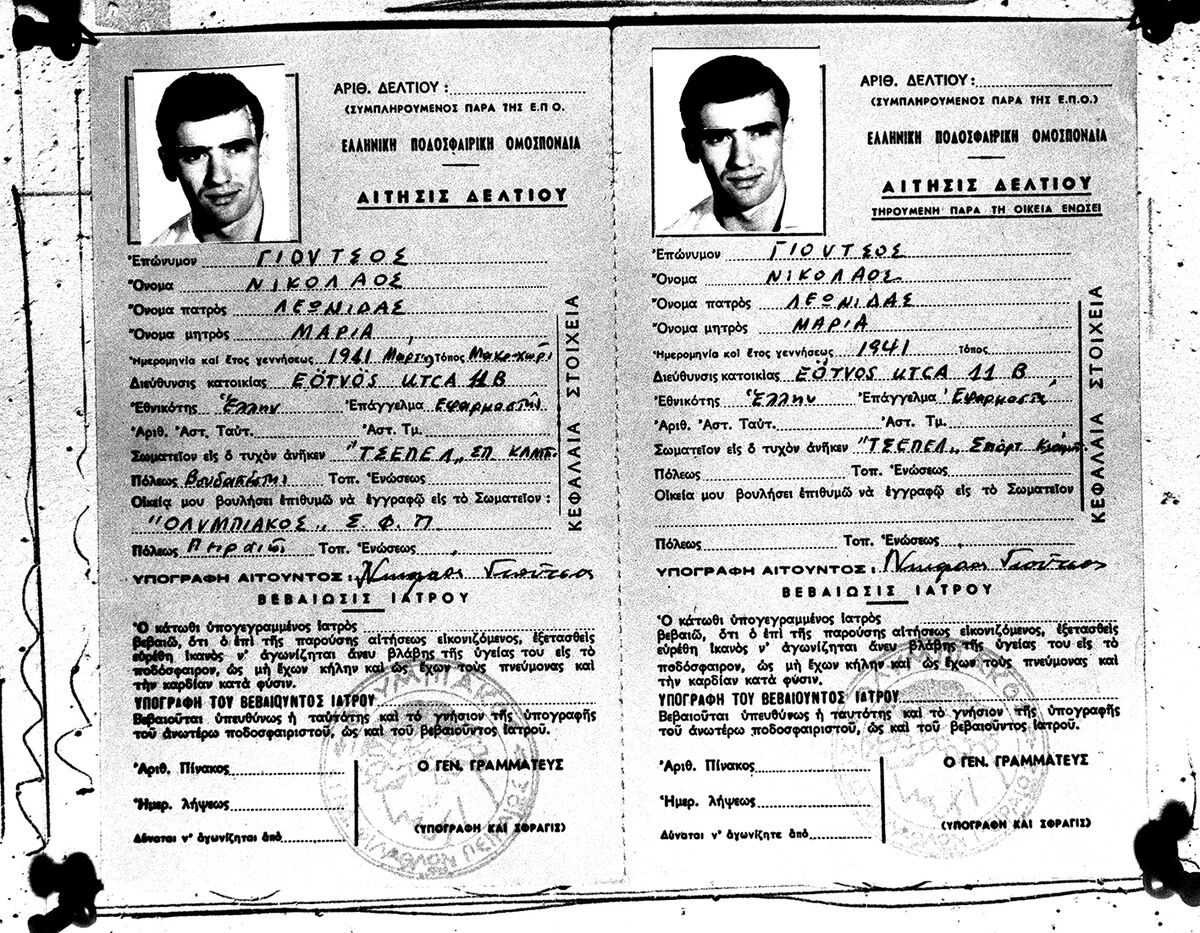 ΑΡΙΘ. ΔΕΛΤΙΟΥ :
(ΣΥΜΠΛΗΡΟΥΜΕΝΟΣ ΠΑΡΑ ΤΗΣ Ε.Π.Ο.
ΕΛΛΗΝΙΚΗ ΠΟΔΟΣΦΑΙΡΙΚΗ ΟΜΟΣΠΟΝΔΙΑ
ΑΙΤΗΣΙΣ ΔΕΛΤΙΟΥ
Ἐπώνυμον ΓΙΟΥΤΣΟΣ
Ὄνομα ΝΙΚΟΛΑΟΣ
Ὄνομα πατρὸς ΛΕΩΝΙΔΑΣ
Ὄνομα μητρὸς ΜΑΡΙΑ
Ἡμερομηνία καὶ ἔτος γεννήσεως 1941 Τόπος
Διεύθυνσις κατοικίας EÖTVÖS UTCA 11 B
Ἐθνικότης Ἕλλην Ἐπάγγελμα Εφαρμοστὴς
Ἀριθ. Ἀστ. Ταύτ. Ἀστ. Τμ.
Σωματεῖον εἰς ὃ τυχὸν ἀνῆκεν "ΤΣΕΠΕΛ„ ΣΠ ΚΛΜΠ.
Πόλεως Βουδαπέστη Τοπ. Ἑνώσεως
Οἰκείᾳ μου βουλήσει ἐπιθυμῶ νὰ ἐγγραφῶ εἰς τὸ Σωματεῖον :
"ΟΛΥΜΠΙΑΚΟΣ„ Σ Φ Π
Πόλεως Πειραιῶς Τοπ. Ἑνώσεως
ΥΠΟΓΡΑΦΗ ΑΙΤΟΥΝΤΟΣ : Γιοῦτσος
ΚΕΦΑΛΑΙΑ ΣΤΟΙΧΕΙΑ
ΒΕΒΑΙΩΣΙΣ ΙΑΤΡΟΥ
Ὁ κάτωθι ὑπογεγραμμένος Ἰατρὸς
βεβαιῶ, ὅτι ὁ ἐπὶ τῆς παρούσης αἰτήσεως εἰκονιζόμενος, ἐξετασθεὶς
εὑρέθη ἱκανὸς ν' ἀγωνίζηται ἄνευ βλάβης τῆς ὑγείας του εἰς τὸ
ποδόσφαιρον, ὡς μὴ ἔχων κήλην καὶ ὡς ἔχων τοὺς πνεύμονας καὶ
τὴν καρδίαν κατὰ φύσιν.
ΥΠΟΓΡΑΦΗ ΤΟΥ ΒΕΒΑΙΟΥΝΤΟΣ ΙΑΤΡΟΥ
Βεβαιοῦται ὑπευθύνως ἡ ταὐτότης καὶ τὸ γνήσιον τῆς ὑπογραφῆς
τοῦ ἀνωτέρω ποδοσφαιριστοῦ, ὡς καὶ τοῦ βεβαιοῦντος ἰατροῦ.
Ἀριθ. Πίνακος
Ἡμερ. λήψεως
Δύναται ν' ἀγωνίζηται ἀπὸ
Ο ΓΕΝ. ΓΡΑΜΜΑΤΕΥΣ
(ΥΠΟΓΡΑΦΗ ΚΑΙ ΣΦΡΑΓΙΣ)
ΑΡΙΘ. ΔΕΛΤΙΟΥ :
(ΣΥΜΠΛΗΡΟΥΜΕΝΟΣ ΠΑΡΑ ΤΗΣ Ε.Π.Ο.)
ΕΛΛΗΝΙΚΗ ΠΟΔΟΣΦΑΙΡΙΚΗ ΟΜΟΣΠΟΝΔΙΑ
ΑΙΤΗΣΙΣ ΔΕΛΤΙΟΥ
ΤΗΡΟΥΜΕΝΗ ΠΑΡΑ ΤΗ ΟΙΚΕΙΑ ΕΝΩΣΕΙ
Ἐπώνυμον ΓΙΟΥΤΣΟΣ
Ὄνομα ΝΙΚΟΛΑΟΣ
Ὄνομα πατρὸς ΛΕΩΝΙΔΑΣ
Ὄνομα μητρὸς ΜΑΡΙΑ
Ἡμερομηνία καὶ ἔτος γεννήσεως 1941 τόπος
Διεύθυνσις κατοικίας EÖTVÖS UTCA 11 B
Ἐθνικότης Ἕλλην Ἐπάγγελμα Εφαρμοστὴς
Ἀριθ. Ἀστ. Ταύτ. Ἀστ. Τμ.
Σωματεῖον εἰς ὃ τυχὸν ἀνῆκεν "ΤΣΕΠΕΛ„ Σπὸρτ
Πόλεως Τοπ. Ἑνώσεως
Οἰκείᾳ μου βουλήσει ἐπιθυμῶ νὰ ἐγγραφῶ εἰς τὸ Σωματεῖον
Πόλεως Τοπ. Ἑνώσεως
ΥΠΟΓΡΑΦΗ ΑΙΤΟΥΝΤΟΣ : Γιοῦτσος
ΚΕΦΑΛΑΙΑ ΣΤΟΙΧΕΙΑ
ΒΕΒΑΙΩΣΙΣ ΙΑΤΡΟΥ
Ὁ κάτωθι ὑπογεγραμμένος Ἰατρὸς
βεβαιῶ, ὅτι ὁ ἐπὶ τῆς παρούσης αἰτήσεως εἰκονιζόμενος, ἐξετασθεὶς
εὑρέθη ἱκανὸς ν' ἀγωνίζηται ἄνευ βλάβης τῆς ὑγείας του εἰς τὸ
ποδόσφαιρον, ὡς μὴ ἔχων κήλην καὶ ὡς ἔχων τοὺς πνεύμονας καὶ
τὴν καρδίαν κατὰ φύσιν.
ΥΠΟΓΡΑΦΗ ΤΟΥ ΒΕΒΑΙΟΥΝΤΟΣ ΙΑΤΡΟΥ
Βεβαιοῦται ὑπευθύνως ἡ ταυτότης καὶ τὸ γνήσιον τῆς ὑπογραφῆς
τοῦ ἀνωτέρω ποδοσφαιριστοῦ, ὡς καὶ τοῦ βεβαιοῦντος ἰατροῦ.
Ἀριθ. Πίνακος
Ἡμερ. λήψεως
Δύναται ν' ἀγωνίζητε ἀπὸ
Ο ΓΕΝ. ΓΡΑΜΜΑΤΕΥΣ
(ΥΠΟΓΡΑΦΗ ΚΑΙ ΣΦΡΑΓΙΣ)